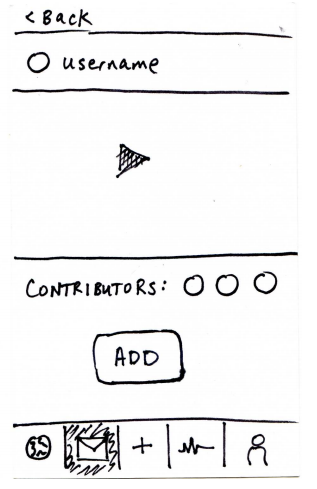 < Back
username
CONTRIBUTORS:
ADD
+